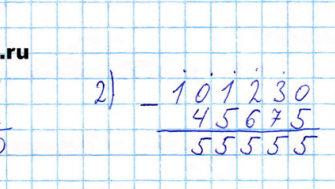 .ru
2) – 101230
45675
55555